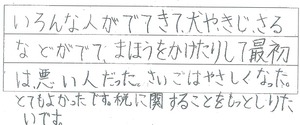 いろんな人がでてきて、犬や、きじ、さる
などがでて、まほうをかけたりして最初
は、悪い人だった。さいごはやさしくなった。
とてもよかったです。税に関することをもっとしりた
いです。